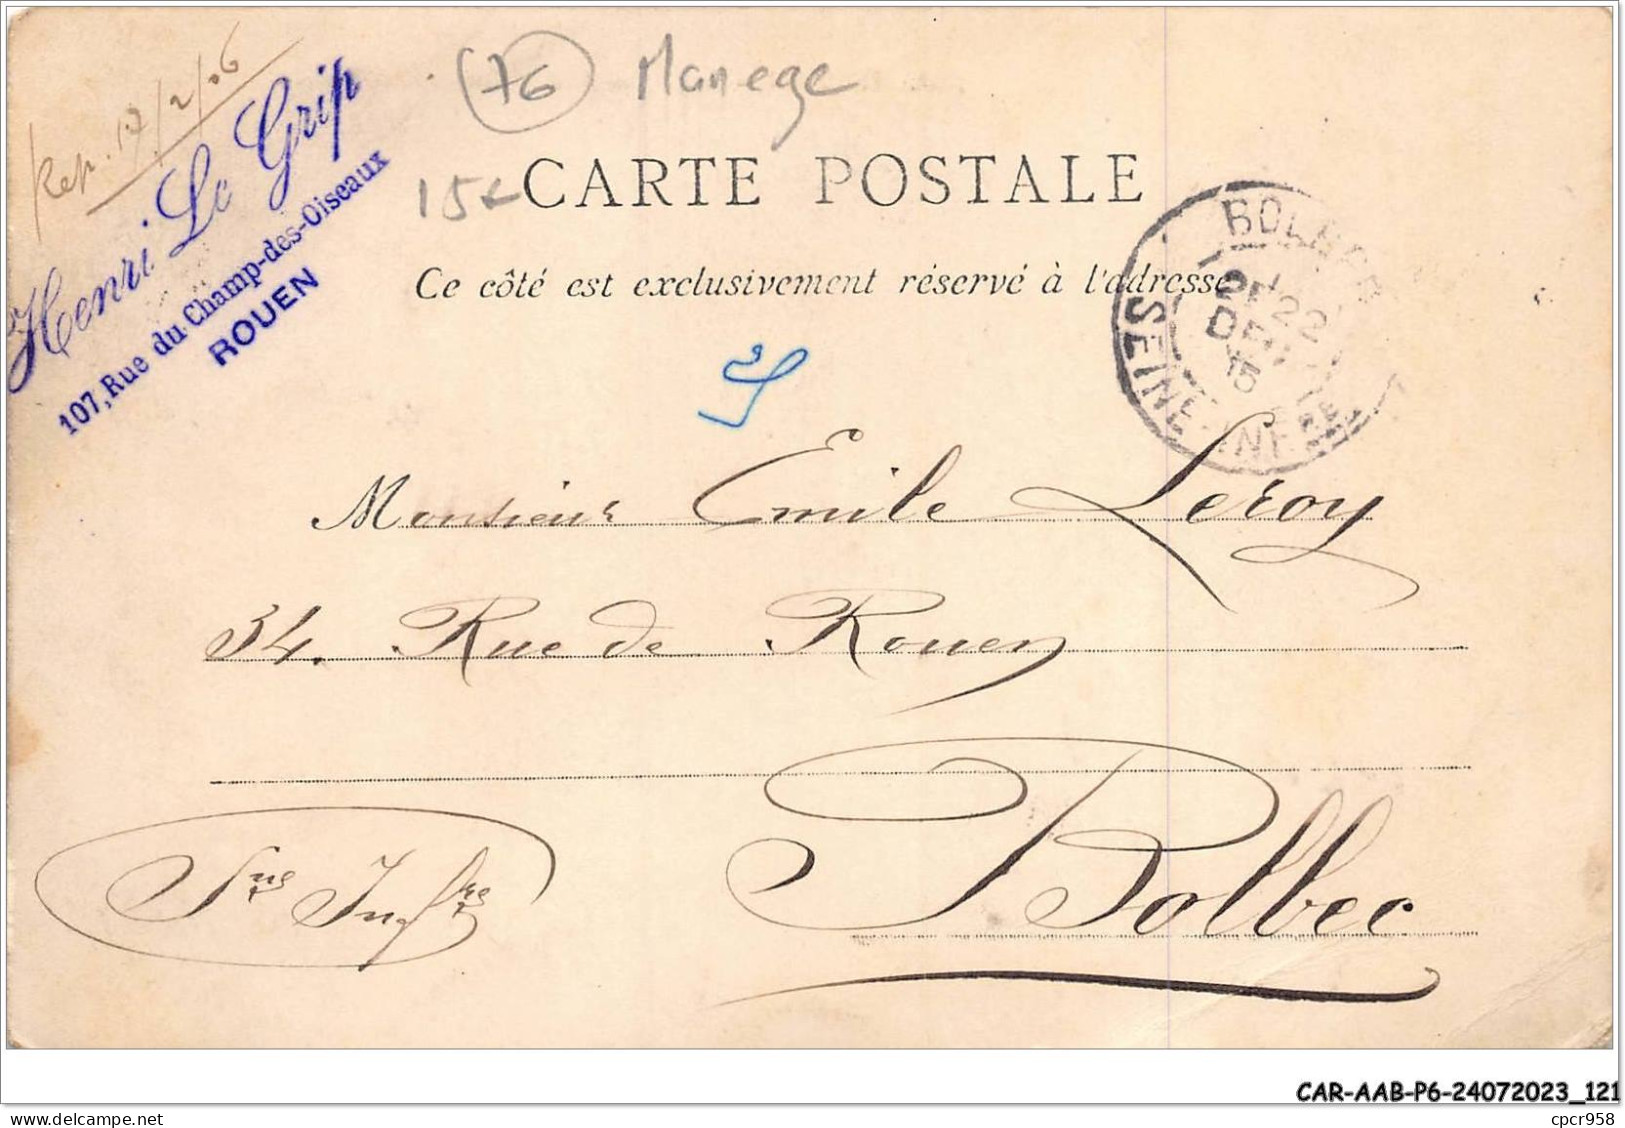 Rep. 17/2/06
76 Manege
Henri Le Grip
107, Rue du Champ-des-Oiseaux
ROUEN
15€
CARTE POSTALE
Ce côté est exclusivement réservé à l'adresse
BOLBEC
2E 22
DEC
SEINE-INFRE
Monsieur Emile Leroy
34. Rue de Rouen
Bolbec
Sne Infre
CAR-AAB-P6-24072023_121
cpcr958